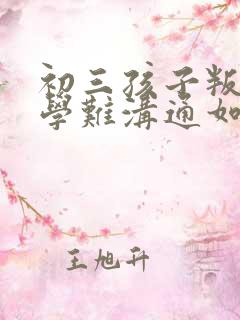 初三孩子叛
學難溝通如
王旭升